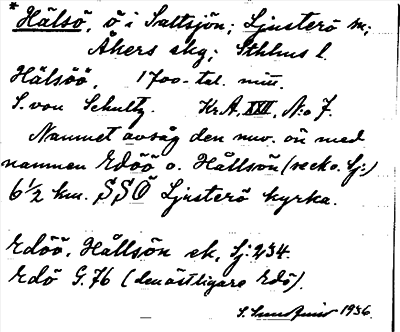 * Hälsö, ö i Saltsjön; Ljusterö sn;
Åkers skg; Sthlms l.
Hälsöö, 1700-tal.
S. von Schultz. Kr.A, XXII, No 7.
Namnet avsåg den nuv. ön med
namnen Edöö o. Hållsön (se eko. Lj:)
6 1/2 km. SSÖ Ljusterö kyrka.
Edöö, Hållsön ek, Lj: 234.
Edö G. 76 (den östligare Edö).
1936.